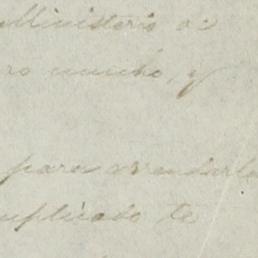 Ministerio de
ro mucho, y
para mandarle
suplicado te